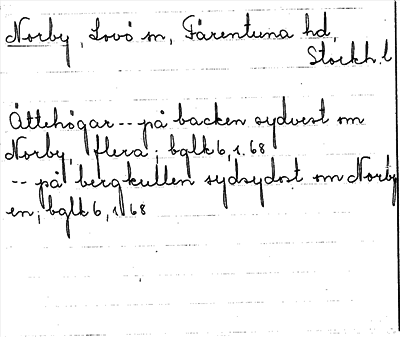 Norby, Lovö sn, Färentuna hd,
Stockh. l
Ättehögar -- på backen sydvest om
Norby, flera; bglk 6, 1.68
-- på bergkullen sydsydost om Norby
en; bglk 6, 1.68